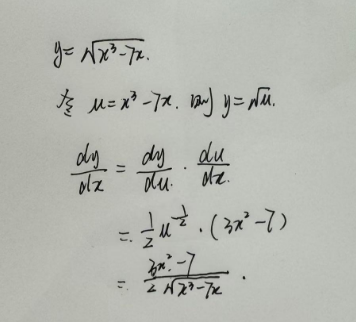 y = √(x³-7x).
令 u = x³-7x. 则 y = √u.
dy/dx = dy/du · du/dx.
= 1/2 u^(-1/2) · (3x²-7)
= (3x²-7)/(2√(x³-7x)) .